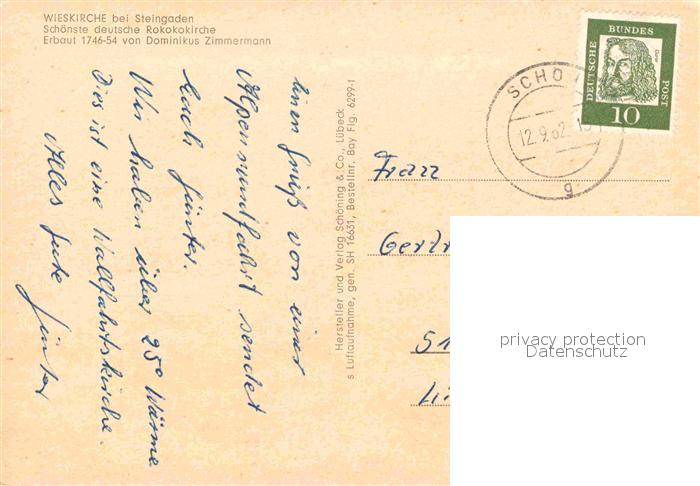 WIESKIRCHE bei Steingaden
Schönste deutsche Rokokokirche
Erbaut 1746-54 von Dominikus Zimmermann
Einen Gruß von einer
Alpenrundfahrt sendet
Günter.
Wir haben über 25° Wärme
Dies ist eine Wallfahrtskirche.
Alles Gute Günter
Hersteller und Verlag Schöning & Co., Lübeck
s Luftaufnahme, gen. SH 16631, Bestellnr. Bay Flg. 6299-1
DEUTSCHE BUNDES POST
Dürer
10
SCHO
12.9.62
g
Frau
Gertr
51
privacy protection
Datenschutz